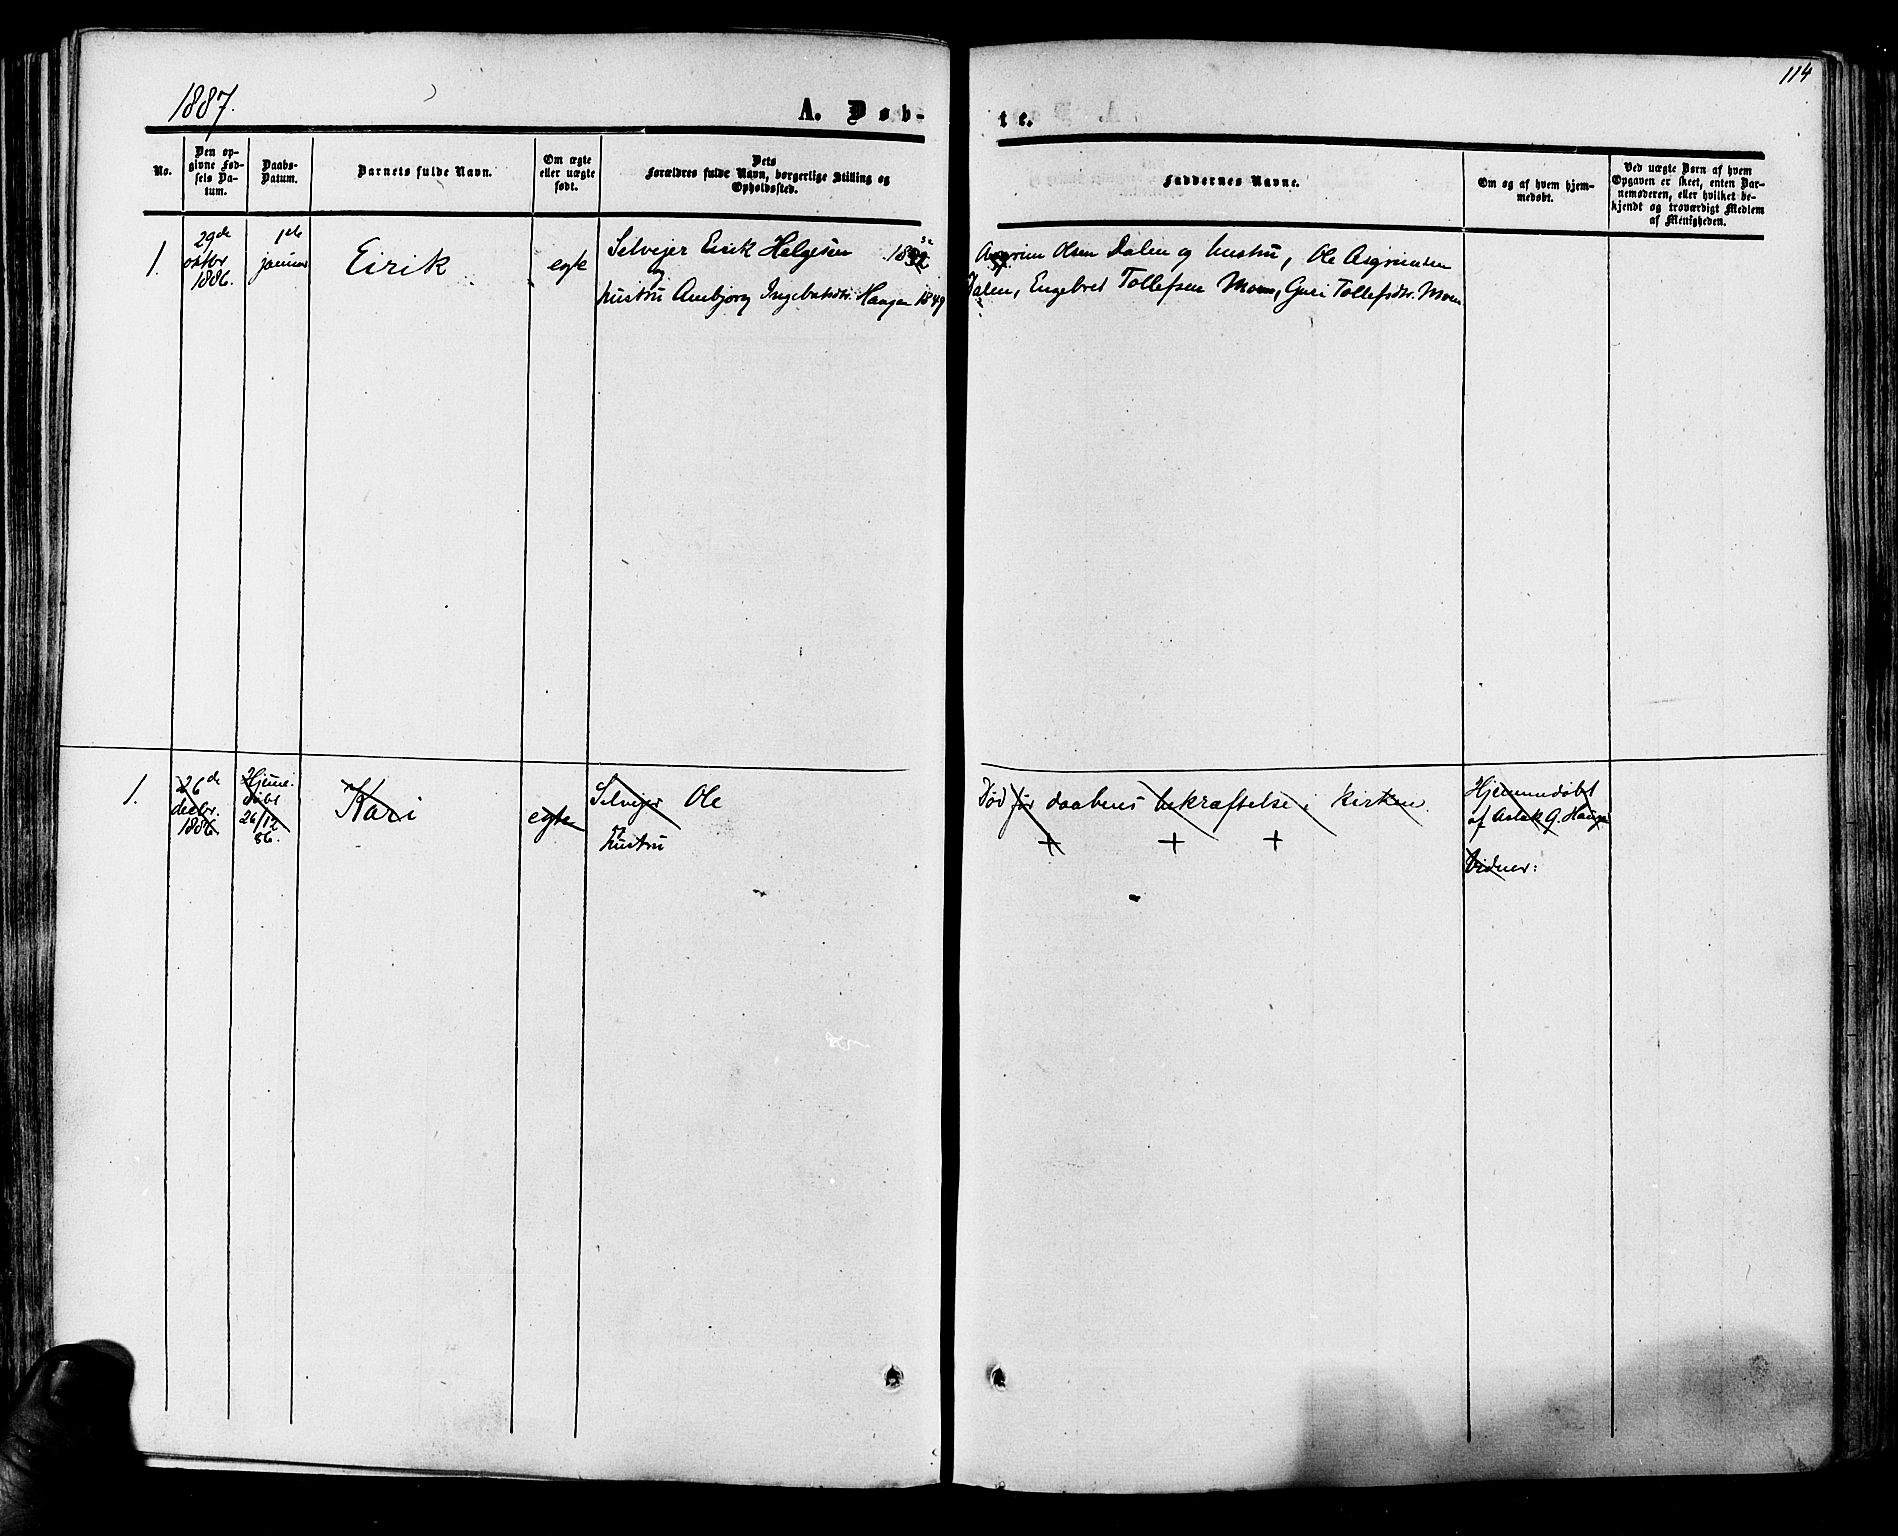 1887.
A. Døb-
te.
114
No.
Den op-
givne Fød-
sels Da-
tum.
Daabs-
Datum.
Barnets fulde Navn.
Om ægte
eller uægte
født.
Dets
Forældres fulde Navn, borgerlige Stilling og
Opholdssted.
Faddernes Navne.
Om og af hvem hjem-
medøbt.
Ved uægte Børn af hvem
Opgaven er skeet, enten Bar-
nemoderen, eller hvilket be-
kjendt og troværdigt Medlem
af Menigheden.
1.
29de
oktbr
1886.
1ste
januar
Eirik
egte
Selvejer Eirik Helgesen
og
hustru Ambjorg Ingebretsdtr. Haugen 1849
Asgrim Olsen Dalen og hustru, Ole Asgrimsen
Dalen, Engebret Tollefsen Moen, Guri Tollefsdtr. Moen
1.
26de
decbr.
1886
Hjemme-
døbt
26/12
86.
Kari
egte
Selvejer Ole
og
hustru
Død før daabens bekræftelse i kirken.
+ + +
Hjemmedøbt
af Aslak G. Hauge
Vidner: